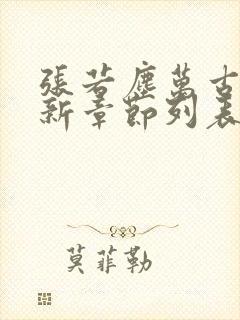 張若塵萬古
新章節列表
莫菲勒